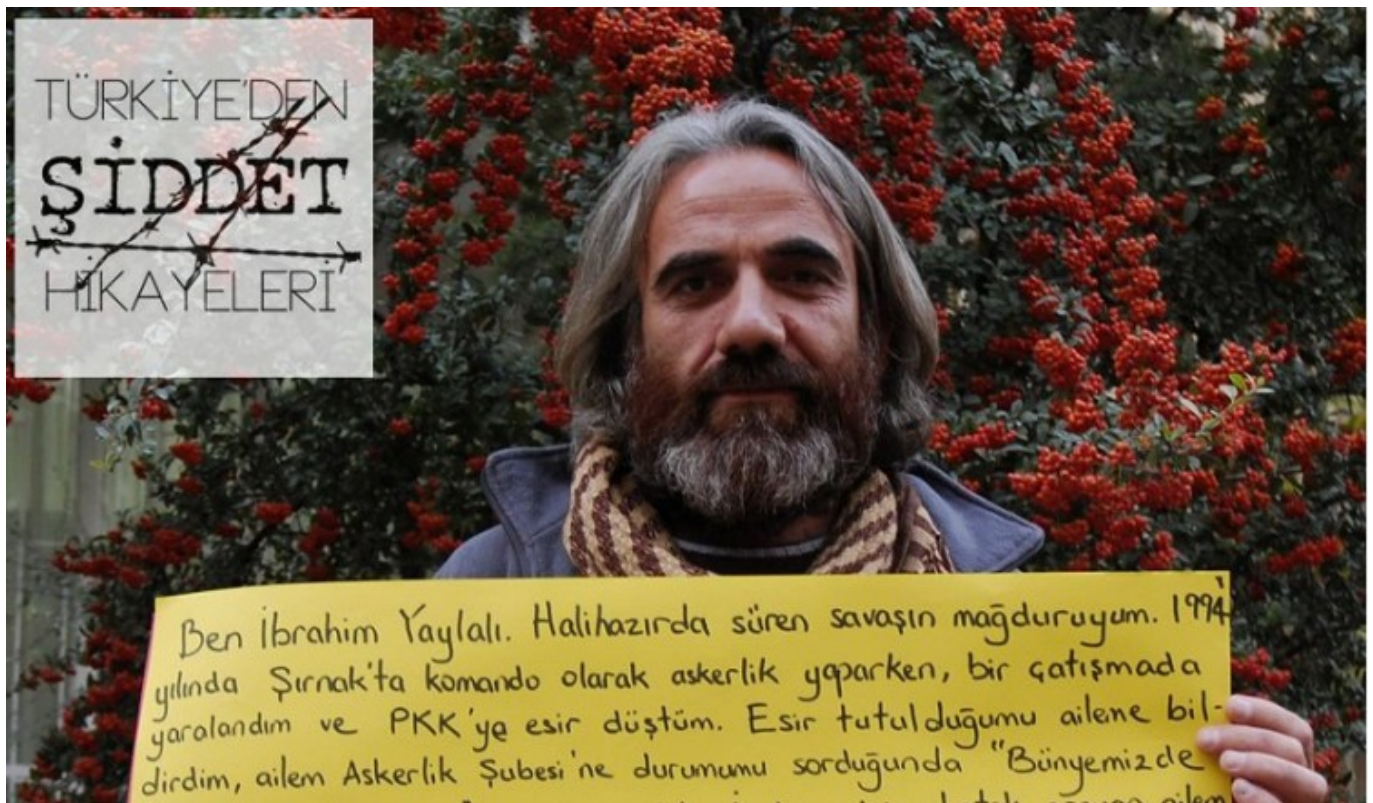 TÜRKİYE'DEN
ŞİDDET
HİKAYELERİ
Ben İbrahim Yaylalı. Halihazırda süren savaşın mağduruyum. 1994
yılında Şırnak'ta komando olarak askerlik yaparken, bir çatışmada
yaralandım ve PKK'ye esir düştüm. Esir tutulduğumu aileme bil-
dirdim, ailem Askerlik Şubesi'ne durumumu sorduğunda "Bünyemizde
ailem